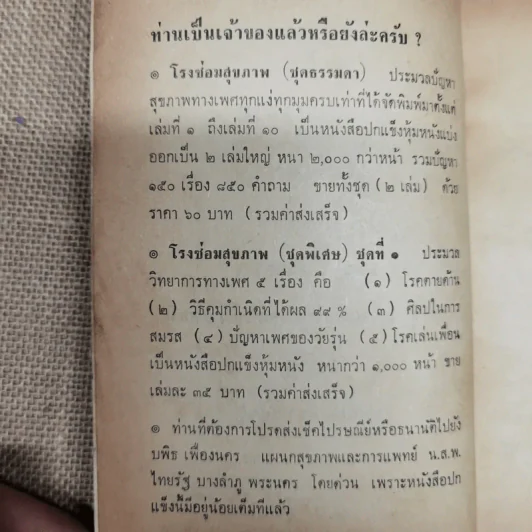 ท่านเป็นเจ้าของแล้วหรือยังล่ะครับ ?
๏ โรงซ่อมสุขภาพ (ชุดธรรมดา) ประมวลปัญหา
สุขภาพทางเพศทุกแง่ทุกมุมครบเท่าที่ได้จัดพิมพ์มาตั้งแต่
เล่มที่ ๑ ถึงเล่มที่ ๑๐ เป็นหนังสือปกแข็งหุ้มหนังแบ่ง
ออกเป็น ๒ เล่มใหญ่ หนา ๒,๐๐๐ กว่าหน้า รวมปัญหา
๑๕๐ เรื่อง ๘๕๐ คำถาม ขายทั้งชุด (๒ เล่ม) ด้วย
ราคา ๖๐ บาท (รวมค่าส่งเสร็จ)
๏ โรงซ่อมสุขภาพ (ชุดพิเศษ) ชุดที่ ๑ ประมวล
วิทยาการทางเพศ ๕ เรื่อง คือ (๑) โรคตายด้าน
(๒) วิธีคุมกำเนิดที่ได้ผล ๙๙ % (๓) ศิลปในการ
สมรส (๔) ปัญหาเพศของวัยรุ่น (๕) โรคเล่นเพื่อน
เป็นหนังสือปกแข็งหุ้มหนัง หนากว่า ๑,๐๐๐ หน้า ขาย
เล่มละ ๓๕ บาท (รวมค่าส่งเสร็จ)
๏ ท่านที่ต้องการโปรดส่งเช็คไปรษณีย์หรือธนาณัติไปยัง
นพพิธ เฟื่องนคร แผนกสุขภาพและการแพทย์ น.ส.พ.
ไทยรัฐ บางลำภู พระนคร โดยด่วน เพราะหนังสือปก
แข็งนี้มีอยู่น้อยเต็มทีแล้ว